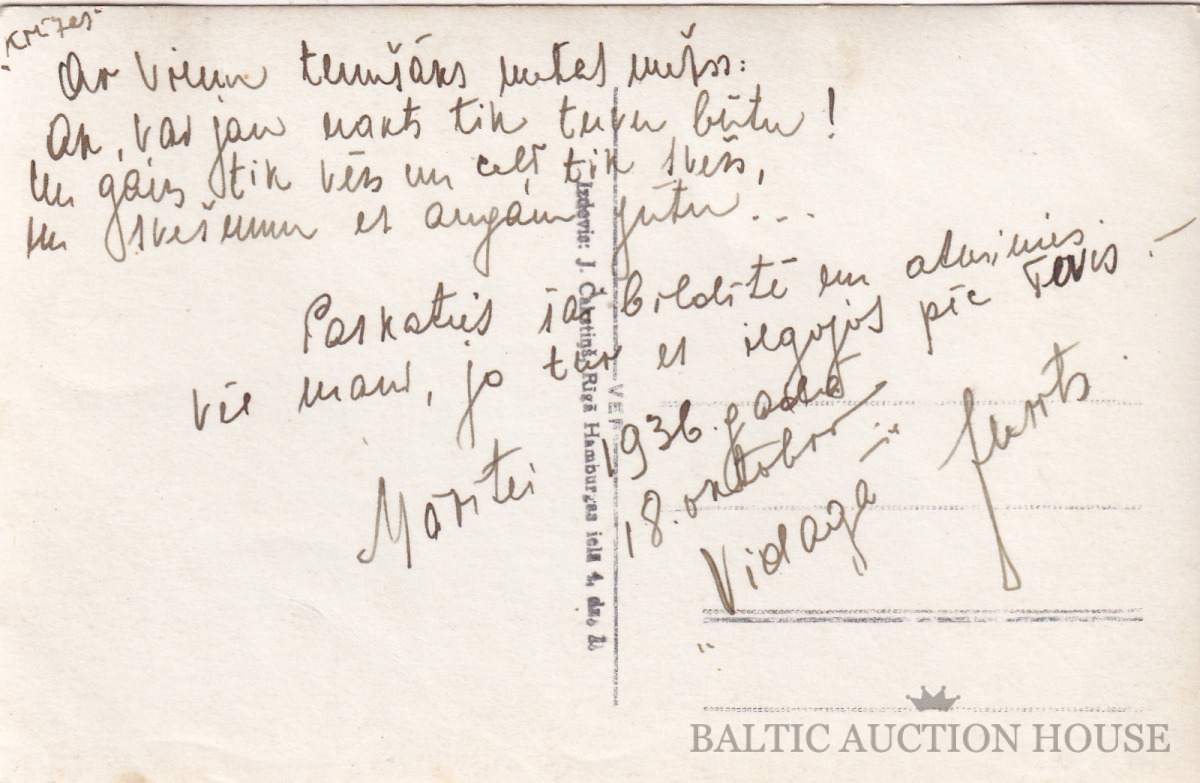 Ar vienu tumšāks metas mežs:
Ak, vai jau nakts tik tuvu būtu!
Un gaiss tik vēss un ceļš tik svešs,
un svešumu es augām jūtu...
Paskaties šā bildītē un atminies
vie mani, jo tur es ilgojos pēc Tevis -
Mārītei
1936. gada
18. oktobrī
Vidagā
Izdevis: J. Čakstiņš, Rīgā Hamburgas ielā 4, dz.
VEF
BALTIC AUCTION HOUSE